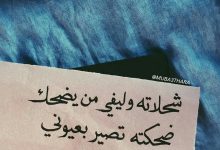 @MUBA27HARA
شحلاته وليفي من يضحك
ضحكته تصير بعيوني